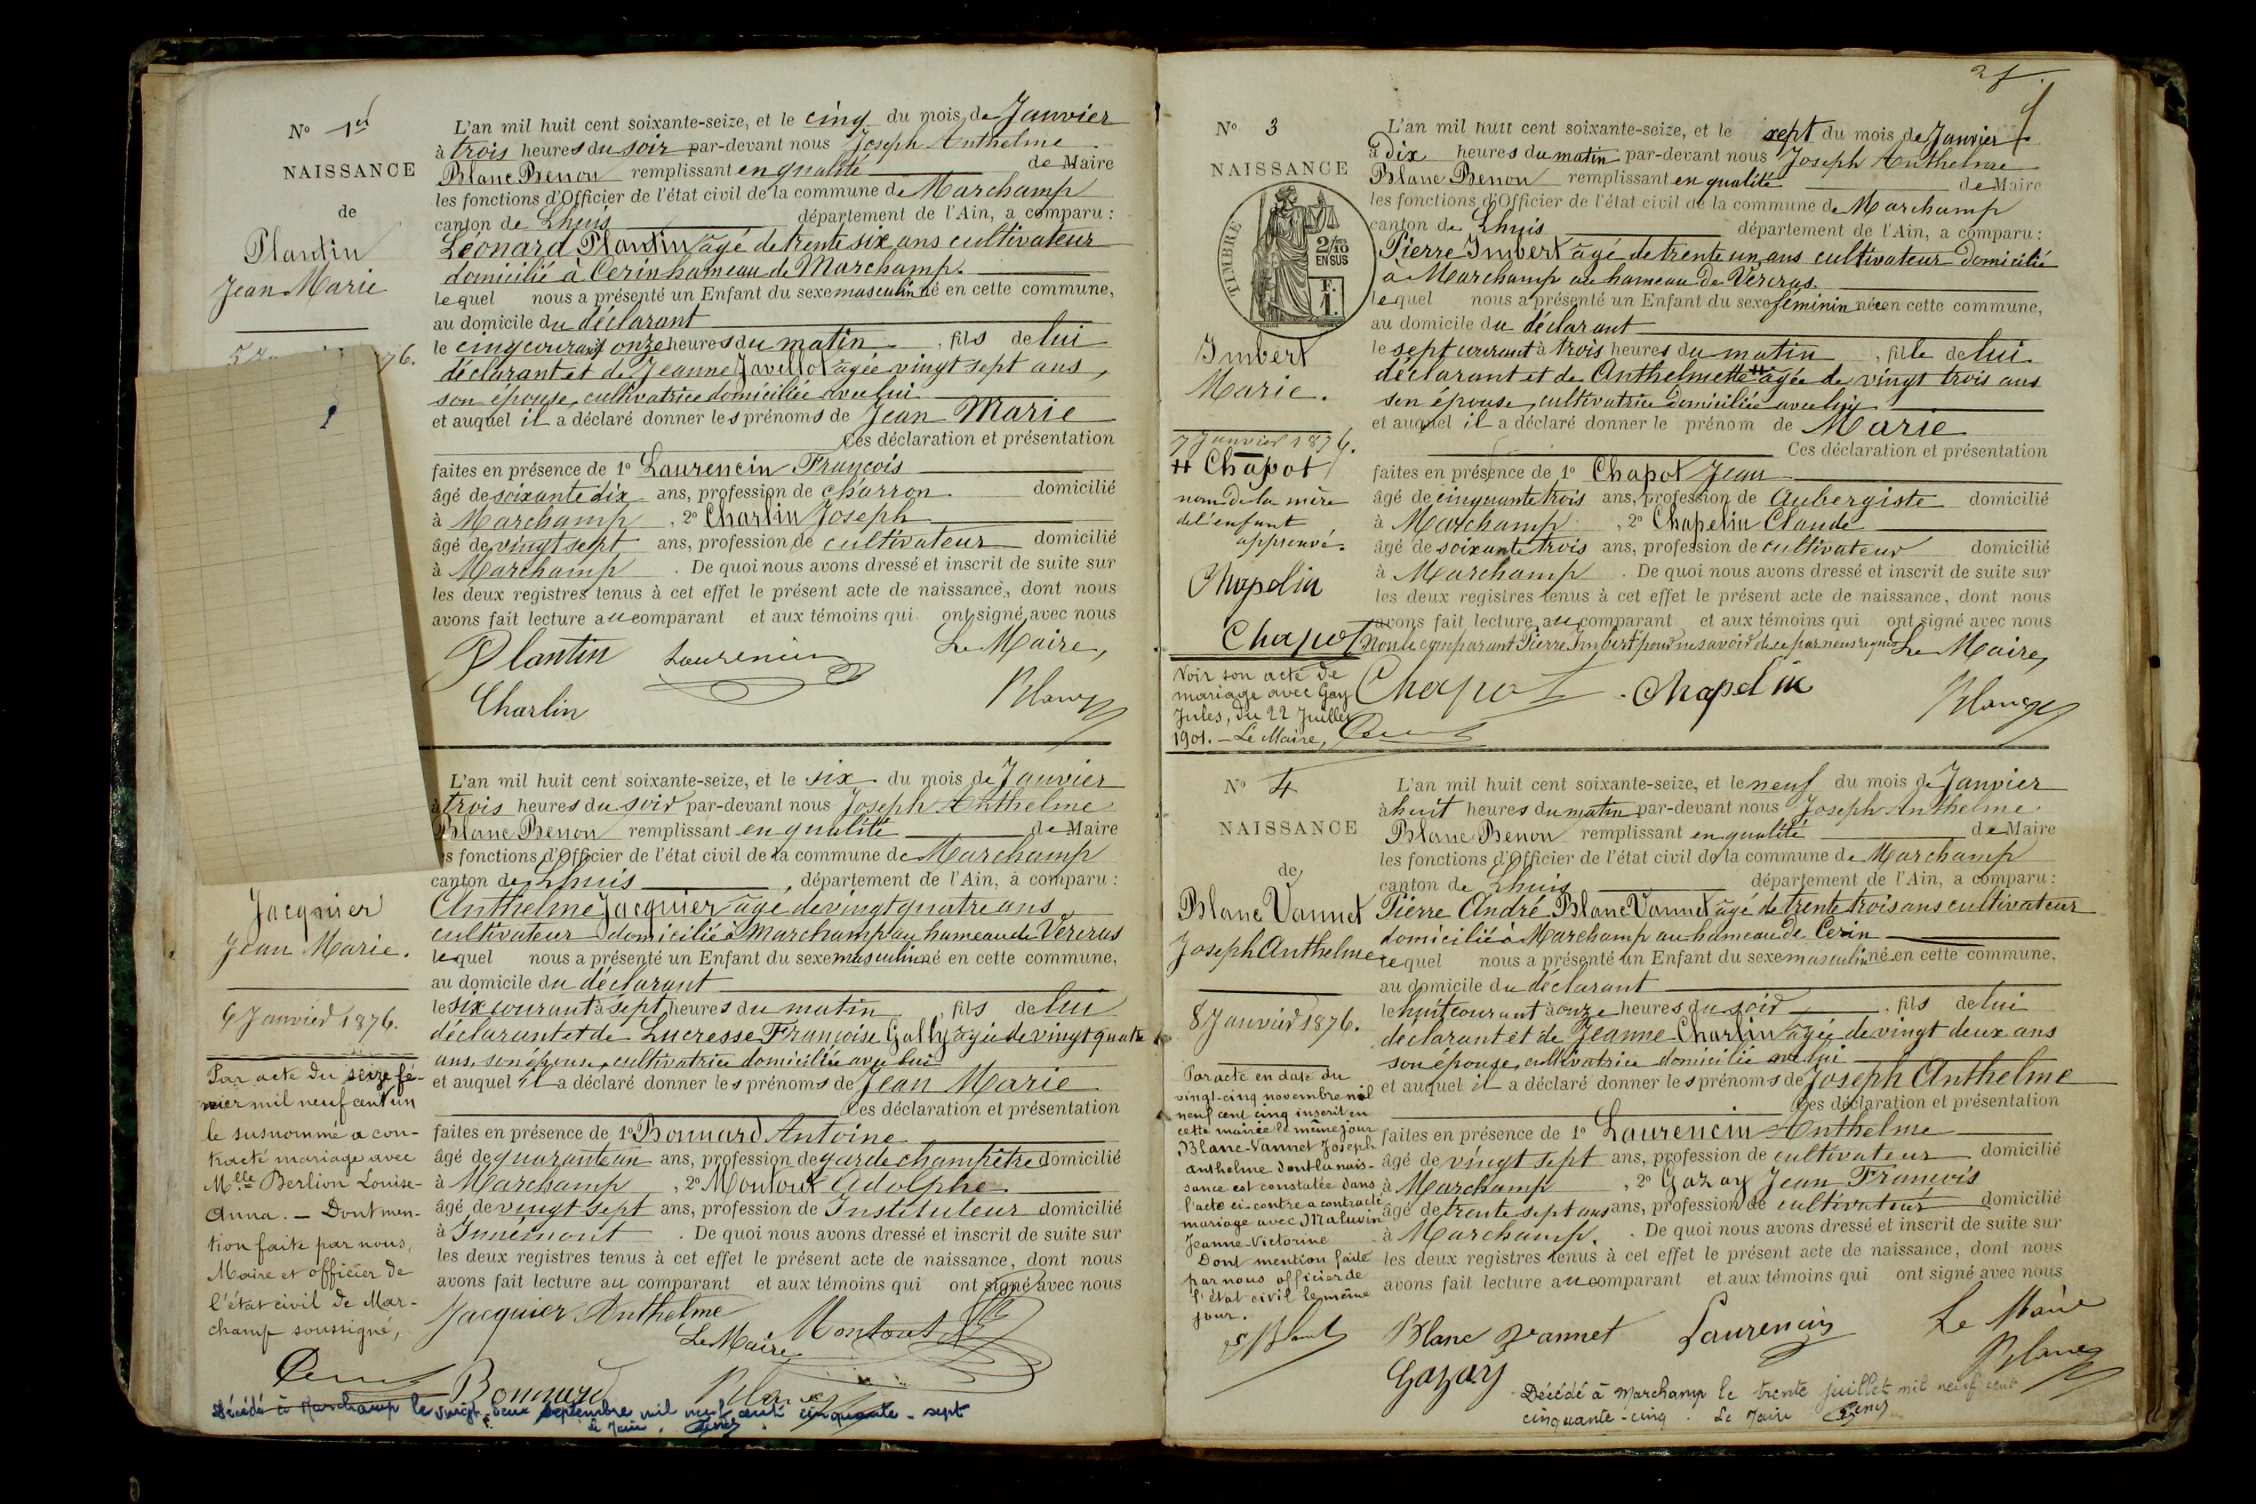 N° 1er
NAISSANCE
de
Plantin
Jean Marie
L'an mil huit cent soixante-seize, et le cinq du mois de Janvier
à trois heures du soir par-devant nous Joseph Anthelme
Blanc Benon remplissant en qualité de Maire
les fonctions d'Officier de l'état civil de la commune de Marchamp
canton de Lhuis département de l'Ain, a comparu :
Léonard Plantin âgé de trente six ans cultivateur
domicilié à Cerin hameau de Marchamp.
lequel nous a présenté un Enfant du sexe masculin né en cette commune,
au domicile du déclarant
le cinq courant onze heures du matin, fils de lui
déclarant et de Jeanne Javillot âgée vingt sept ans,
son épouse, cultivatrice domiciliée avec lui
et auquel il a déclaré donner les prénoms de Jean Marie
Ces déclaration et présentation
faites en présence de 1° Laurencin François
âgé de soixante dix ans, profession de charron domicilié
à Marchamp, 2° Charlin Joseph
âgé de vingt sept ans, profession de cultivateur domicilié
à Marchamp. De quoi nous avons dressé et inscrit de suite sur
les deux registres tenus à cet effet le présent acte de naissance, dont nous
avons fait lecture au comparant et aux témoins qui ont signé avec nous
Plantin Laurencin Le Maire,
Charlin Blanc
Jacquier
Jean Marie.
6 Janvier 1876.
Par acte du seize fé-
vrier mil neuf cent un
le susnommé a con-
tracté mariage avec
Mlle Berlion Louise-
Anna. — Dont men-
tion faite par nous,
Maire et officier de
l'état civil de Mar-
champ soussigné,
L'an mil huit cent soixante-seize, et le six du mois de Janvier
à trois heures du soir par-devant nous Joseph Anthelme
Blanc Benon remplissant en qualité de Maire
es fonctions d'Officier de l'état civil de la commune de Marchamp
canton de Lhuis, département de l'Ain, a comparu :
Anthelme Jacquier âgé de vingt quatre ans
cultivateur domicilié à Marchamp au hameau de Vercras
lequel nous a présenté un Enfant du sexe masculin né en cette commune,
au domicile du déclarant
le six courant à sept heures du matin, fils de lui
déclarant et de Lucresse Françoise Gally âgée de vingt quatre
ans, son épouse, cultivatrice domiciliée avec lui
et auquel il a déclaré donner les prénoms de Jean Marie
Ces déclaration et présentation
faites en présence de 1° Bonnard Antoine
âgé de quarante un ans, profession de garde champêtre domicilié
à Marchamp, 2° Montoux Adolphe
âgé de vingt sept ans, profession de Instituteur domicilié
à Innimont. De quoi nous avons dressé et inscrit de suite sur
les deux registres tenus à cet effet le présent acte de naissance, dont nous
avons fait lecture au comparant et aux témoins qui ont signé avec nous
Jacquier Anthelme
Le Maire
Bonnard Blanc
Décédé à Marchamp le vingt-deux septembre mil neuf cent cinquante-sept
Le Maire,
N° 3
NAISSANCE
TIMBRE
2/10
EN SUS
F.
1.
Imbert
Marie.
7 Janvier 1876.
++ Chapot
nom de la mère
de l'enfant
approuvé.
Chapelin
Chapot
Voir son acte de
mariage avec Gay
Jules, du 22 Juillet
1901. — Le Maire,
L'an mil huit cent soixante-seize, et le sept du mois de Janvier
à dix heures du matin par-devant nous Joseph Anthelme
Blanc Benon remplissant en qualité de Maire
les fonctions d'Officier de l'état civil de la commune de Marchamp
canton de Lhuis département de l'Ain, a comparu :
Pierre Imbert âgé de trente un ans cultivateur domicilié
à Marchamp au hameau de Vercras
lequel nous a présenté un Enfant du sexe féminin née en cette commune,
au domicile du déclarant
le sept courant à trois heures du matin, fille de lui
déclarant et de Anthelmette ++ âgée de vingt trois ans
son épouse, cultivatrice domiciliée avec lui
et auquel il a déclaré donner le prénom de Marie
Ces déclaration et présentation
faites en présence de 1° Chapot Jean
âgé de cinquante trois ans, profession de Aubergiste domicilié
à Marchamp, 2° Chapelin Claude
âgé de soixante trois ans, profession de cultivateur domicilié
à Marchamp. De quoi nous avons dressé et inscrit de suite sur
les deux registres tenus à cet effet le présent acte de naissance, dont nous
avons fait lecture au comparant et aux témoins qui ont signé avec nous
Non le comparant Pierre Imbert pour ne savoir de ce par nous requis Le Maire,
Chapot. Chapelin Blanc
N° 4
NAISSANCE
de
Blanc Vannet
Joseph Anthelme
8 Janvier 1876.
Par acte en date du
vingt-cinq novembre mil
neuf cent cinq inscrit en
cette mairie le même jour
Blanc-Vannet Joseph
anthelme dont la nais-
sance est constatée dans
l'acte ci-contre a contracté
mariage avec Maluvin
Jeanne-Victorine
Dont mention faite
par nous officier de
l'état civil le même
jour.
L'an mil huit cent soixante-seize, et le neuf du mois de Janvier
à huit heures du matin par-devant nous Joseph Anthelme
Blanc Benon remplissant en qualité de Maire
les fonctions d'Officier de l'état civil de la commune de Marchamp
canton de Lhuis département de l'Ain, a comparu :
Pierre André Blanc Vannet âgé de trente trois ans cultivateur
domicilié à Marchamp au hameau de Cerin
lequel nous a présenté un Enfant du sexe masculin né en cette commune,
au domicile du déclarant
le huit courant à onze heures du soir, fils de lui
déclarant et de Jeanne Charlin âgée de vingt deux ans
son épouse, cultivatrice domicilié avec lui
et auquel il a déclaré donner les prénoms de Joseph Anthelme
Ces déclaration et présentation
faites en présence de 1° Laurencin Anthelme
âgé de vingt sept ans, profession de cultivateur domicilié
à Marchamp, 2° Gazay Jean François
âgé de trente sept ans ans, profession de cultivateur domicilié
à Marchamp. De quoi nous avons dressé et inscrit de suite sur
les deux registres tenus à cet effet le présent acte de naissance, dont nous
avons fait lecture au comparant et aux témoins qui ont signé avec nous
Blanc Vannet Laurencin Le Maire
Gazay Blanc
Décédé à Marchamp le trente juillet mil neuf cent
cinquante-cinq. Le Maire